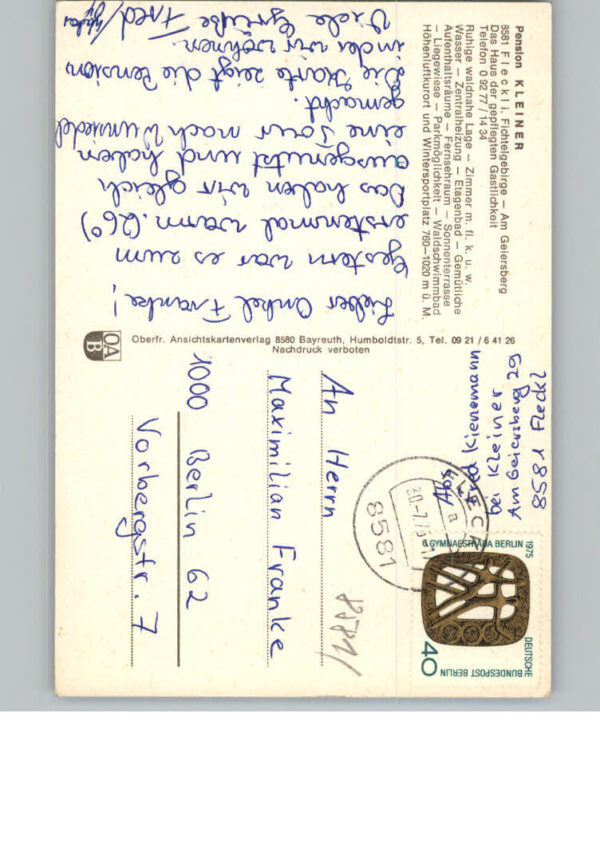 Pension KLEINER
8581 Fleckl i. Fichtelgebirge – Am Geiersberg
Das Haus der gepflegten Gastlichkeit
Telefon 0 92 77 / 14 34
Ruhige waldnahe Lage – Zimmer m. fl. k. u. w.
Wasser – Zentralheizung – Etagenbad – Gemütliche
Aufenthaltsräume – Fernsehraum – Sonnenterrasse
– Liegewiese – Parkmöglichkeit – Waldschwimmbad
Höhenluftkurort und Wintersportplatz 760–1020 m ü. M.
Lieber Onkel Franke!
Gestern war es zum
erstenmal warm. (26°)
Das haben wir gleich
ausgenutzt und haben
eine Tour nach Wunsiedel
gemacht.
Die Karte zeigt die Pension
in der wir wohnen.
Viele Grüße Fred/
OA
B
Oberfr. Ansichtskartenverlag 8580 Bayreuth, Humboldtstr. 5, Tel. 09 21 / 6 41 26
Nachdruck verboten
Abs.
Fred Kienemann
bei Kleiner
Am Geiersberg 29
8581 Fleckl
8581
FLECKL
a
6. GYMNAESTRADA BERLIN 1975
DEUTSCHE
BUNDESPOST BERLIN
40
8581/
An Herrn
Maximilian Franke
1000 Berlin 62
Vorbergstr. 7